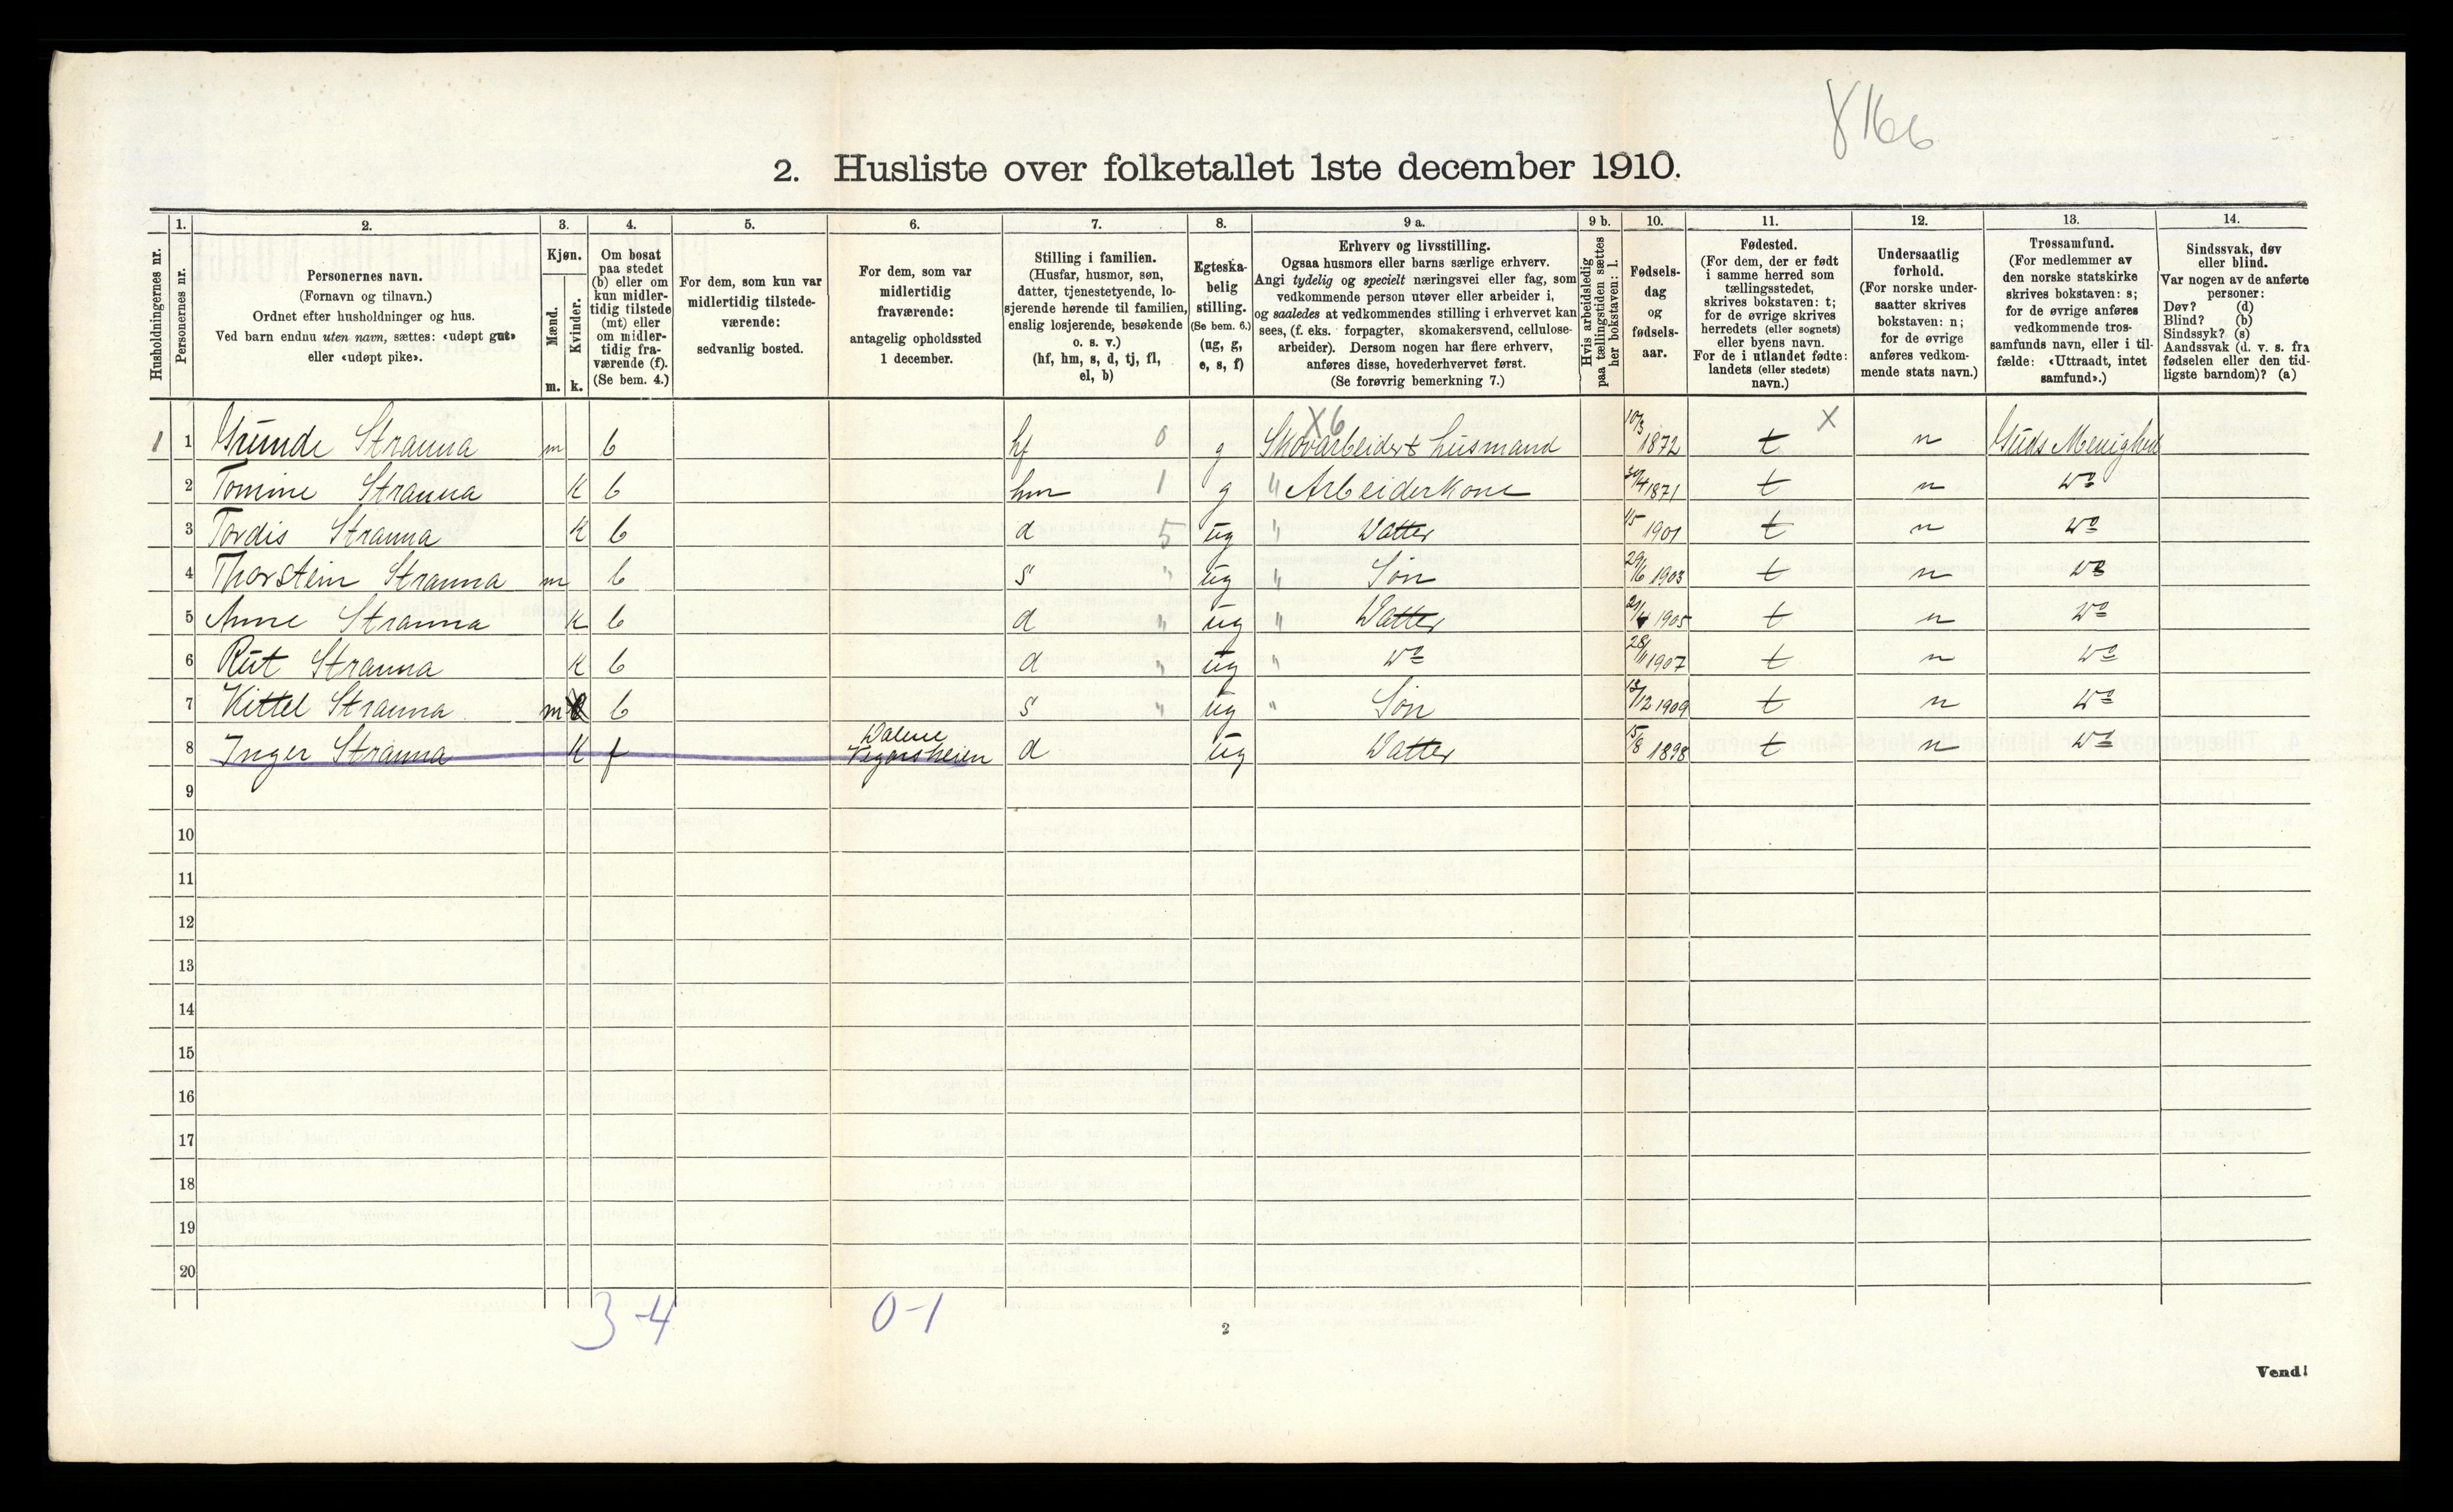 8166
2. Husliste over folketallet 1ste december 1910.
Husholdningernes nr.
1. Personernes nr.
2. Personernes navn. (Fornavn og tilnavn.) Ordnet efter husholdninger og hus. Ved barn endnu uten navn, sættes: «udøpt gut» eller «udøpt pike».
3. Kjøn. Mænd. m. Kvinder. k.
4. Om bosat paa stedet (b) eller om kun midlertidig tilstede (mt) eller om midlertidig fraværende (f). (Se bem. 4.)
5. For dem, som kun var midlertidig tilstedeværende: sedvanlig bosted.
6. For dem, som var midlertidig fraværende: antagelig opholdssted 1 december.
7. Stilling i familien. (Husfar, husmor, søn, datter, tjenestetyende, losjerende hørende til familien, enslig losjerende, besøkende o. s. v.) (hf, hm, s, d, tj, fl, el, b)
8. Egteskabelig stilling. (Se bem. 6.) (ug, g, e, s, f)
9 a. Erhverv og livsstilling. Ogsaa husmors eller barns særlige erhverv. Angi tydelig og specielt næringsvei eller fag, som vedkommende person utøver eller arbeider i, og saaledes at vedkommendes stilling i erhvervet kan sees, (f. eks. forpagter, skomakersvend, cellulosearbeider). Dersom nogen har flere erhverv, anføres disse, hovederhvervet først. (Se forøvrig bemerkning 7.)
9 b. Hvis arbeidsledig paa tællingstiden sættes her bokstaven: l.
10. Fødselsdag og fødselsaar.
11. Fødested. (For dem, der er født i samme herred som tællingsstedet, skrives bokstaven: t; for de øvrige skrives herredets (eller sognets) eller byens navn. For de i utlandet fødte: landets (eller stedets) navn.)
12. Undersaatlig forhold. (For norske undersaatter skrives bokstaven: n; for de øvrige anføres vedkommende stats navn.)
13. Trossamfund. (For medlemmer av den norske statskirke skrives bokstaven: s; for de øvrige anføres vedkommende trossamfunds navn, eller i tilfælde: «Uttraadt, intet samfund».)
14. Sindssvak, døv eller blind. Var nogen av de anførte personer: Døv? (d) Blind? (b) Sindssyk? (s) Aandssvak (d. v. s. fra fødselen eller den tidligste barndom)? (a)
X6 X
1 1 Gunde Stranna m b hf 0 g Skovarbeider & husmand 10/3 1872 t n Guds Menighed
2 Tomine Stranna K b hm 1 g " Arbeiderkone 1871 t n Do
3 Tordis Stranna K b d 5 ug " Datter 1/5 1901 t n Do
4 Thorstein Stranna m b s " ug " Søn 29/6 1903 t n Do
5 Anne Stranna K b d " ug " Datter 21/4 1905 t n Do
6 Rut Stranna K b d " ug " Do 28/11 1907 t n Do
7 Kittel Stranna m b s " ug " Søn 13/12 1909 t n Do
8 Inger Stranna K f Valene Vegårsheien d ug Datter 15/8 1898 t n Do
9
10
11
12
13
14
15
16
17
18
19
20
3-4 0-1
2
Vend!